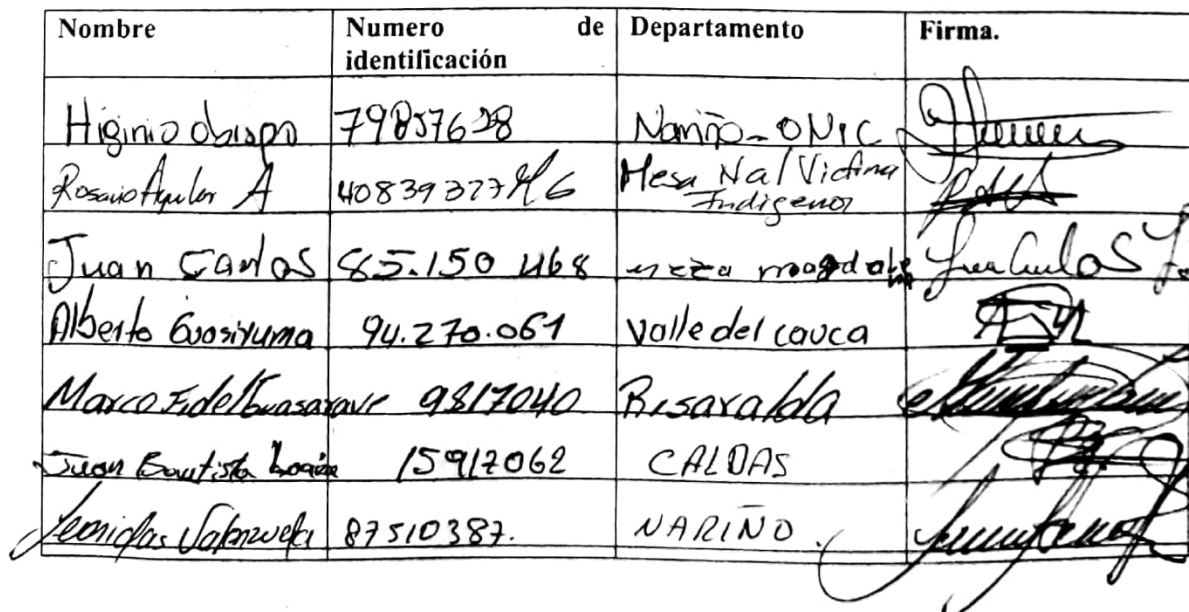 Nombre Numero de identificación Departamento Firma.
Higinio obispo 79857628 Nariño - ONIC
Rosario Aguilar A 40839327 Mesa Nal Victima Indigenas
Juan Carlos 85.150 468
Alberto Guasiruma 94.270.061 Valle del cauca
Marco Fidel 9817040 Risaralda
Juan Bautista 15917062 CALDAS
Leonidas Valenzuela 87510387. NARIÑO.